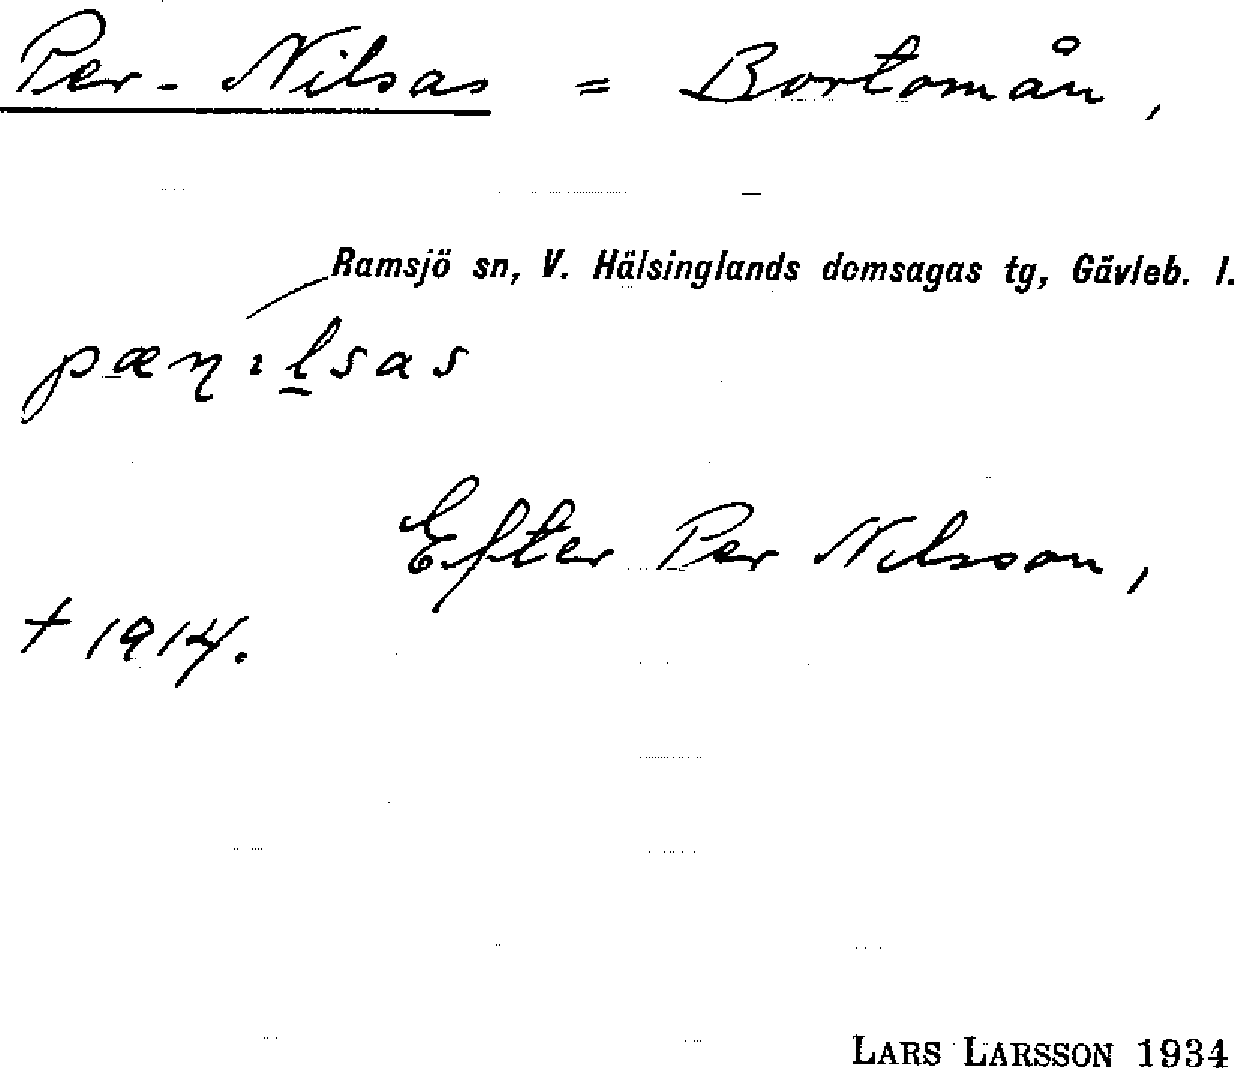 Per-Nilsas = Bortomån,
Ramsjö sn, V. Hälsinglands domsagas tg, Gävleb. l.
pæṇılsas
Efter Per Nilsson,
† 1914.
LARS LARSSON 1934